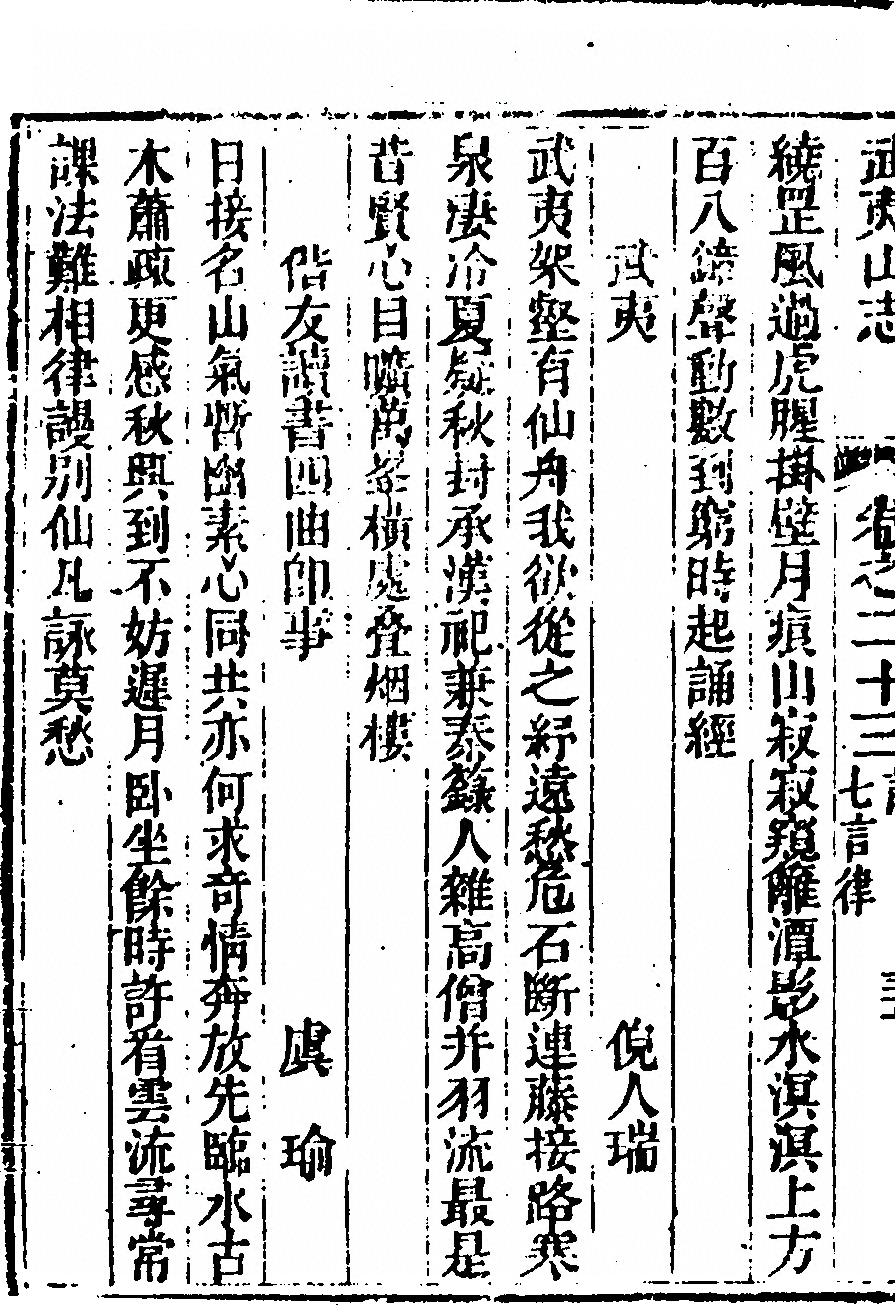 武夷山志 卷之二十三 七言律
繞罡風過虎腥掛壁月痕山寂寂窺雕潭影水溟溟上方
百八鐘聲動數到窮時起誦經
武夷 倪人瑞
武夷架壑有仙舟我欲從之紓遠愁危石斷連藤接路寒
泉凄冷夏疑秋封承漢祀兼秦籙人雜高僧并羽流最是
昔賢心目曠萬峯橫處疊烟樓
偕友讀書四曲卽事 虞瑜
日接名山氣暫幽素心同共亦何求奇情奔放先臨水古
木蕭疎更感秋興到不妨遲月臥坐餘時許看雲流尋常
課法難相律謾別仙凡詠莫愁